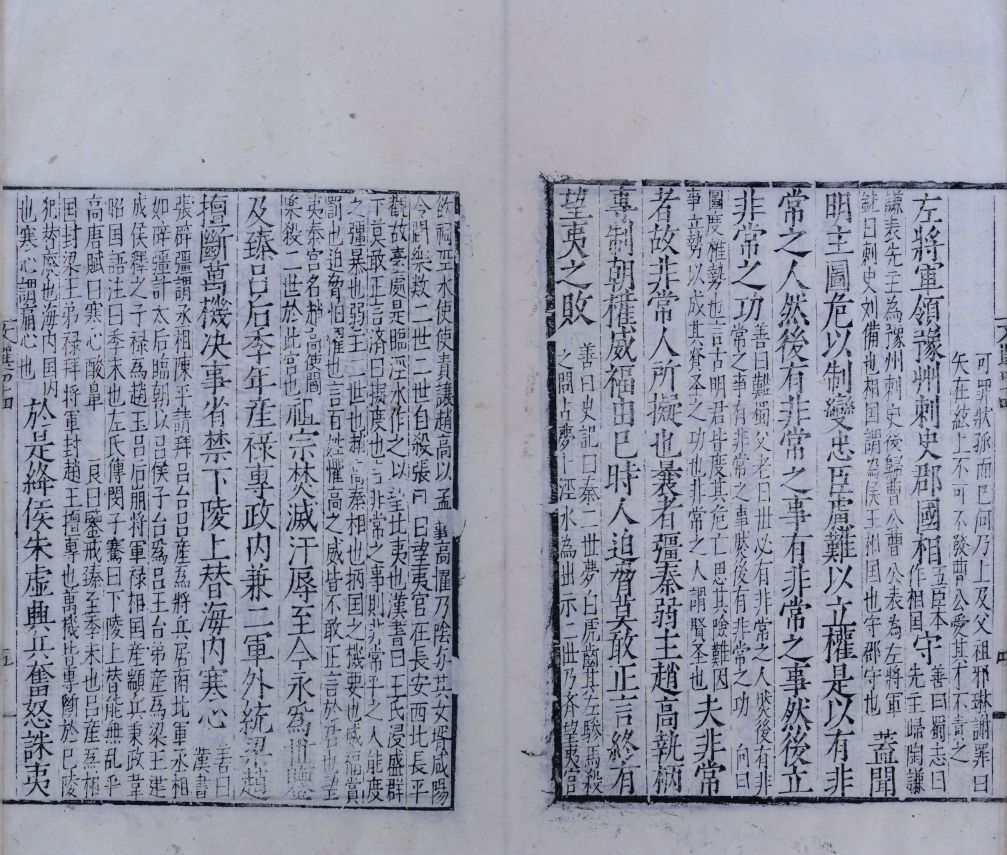 可罪狀孤而已何乃上及父祖邪琳謝罪曰
矢在絃上不可不發曹公愛其才不責之
左將軍領豫州刺史郡國相五臣本作相国守善曰蜀志曰先主歸陶謙
謙表先主為豫州刺史後歸曹公曹公表為左將軍
銑曰刺史刘備也相国謂為侯王相国也守郡守也蓋聞
明主圖危以制變忠臣慮難以立權是以有非
常之人然後有非常之事有非常之事然後立
非常之功善曰難蜀父老曰世必有非常之人然後有非常之事有非常之事然後有非常之功向曰
圖度權勢也言古明君皆度其危亡思其險難因
事立勢以成其賢圣之功也非常之人謂賢圣也夫非常
者故非常人所擬也曩者彊秦弱主趙高執柄
專制朝權威福由己時人迫脅莫敢正言終有
望夷之敗善曰史記曰秦二世夢白虎齧其左驂馬殺
之問占夢卜涇水為祟二世乃齊望夷宮
欲祠涇水使使責讓趙高以事高懼乃陰与其女壻咸陽
令閻樂殺二世二世自殺張曰望夷宮在長安西北長平
觀故臺處是臨涇水作之以望北夷也漢書曰王氏浸盛群
下莫敢正言济曰擬度也言非常之事則非常平之人能度
之彊暴也弱主二世也趙高秦相也柄国之機要也威福賞
罰也迫脅怕懼也言百姓懼高之威皆不敢正言於君也望
夷秦宮名趙高使閻
樂殺二世於此宮也祖宗焚滅汙辱至今永為世鑒
及臻呂后季年産祿專政內兼二軍外統梁趙
擅斷萬機決事省禁下陵上替海內寒心善曰漢書
張辟彊謂丞相陳平請拜呂台呂産為將兵居南北軍丞相
如辟彊計太后臨朝以呂侯子台為呂王台弟産為梁王建
成侯釋之子祿為趙王呂后崩將軍祿相国産顓兵秉政韋
昭国語注曰季末也左氏傳閔子騫曰下陵上替能無乱乎
高唐賦曰寒心酸鼻良曰鑒戒臻至季末也呂産為相
国封梁王弟祿拜將軍封趙王擅專也萬機皆專斷於已陵
犯替廢也海内国内
也寒心謂痛心也於是絳侯朱虛興兵奮怒誅夷